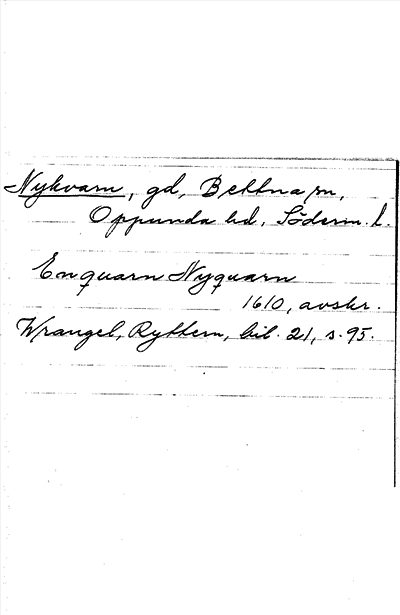 Nykvarn, gd, Bettna sn,
Oppunda hd, Söderm. l.
En quarn Nyquarn
1610, avskr.
Wrangel, Ryttern, bil. 21, s. 95.